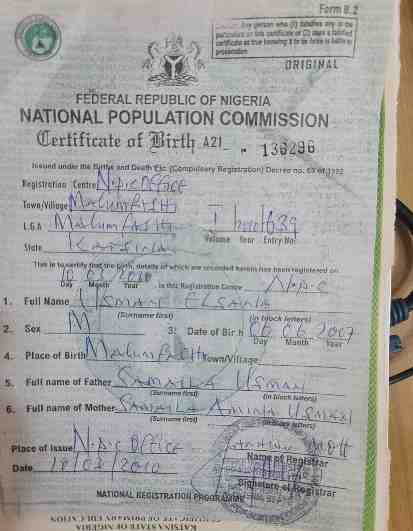 Form B.2
Any person who (1) falsifies any of the
particulars on this certificate or (2) uses a falsified
certificate as true knowing it to be false is liable to
prosecution
ORIGINAL
FEDERAL REPUBLIC OF NIGERIA
NATIONAL POPULATION COMMISSION
Certificate of Birth A21 136296
Issued under the Births and Death Etc. (Compulsory Registration) Decree no. 69 of 1992
Registration Centre N.P.C OFFICE
Town/Village MALUMFASHI
L.G.A MALUMFASHI I 639
State KATSINA Volume Year Entry No
This is to certify that the birth, details of which are recorded herein has been registered on
18 03 2010
Day Month Year in this Registration Centre N.P.C
1. Full Name USMAN
(Surname first) (in block letters)
2. Sex M 3. Date of Birth 06 06 2007
Day Month Year
4. Place of Birth MALUMFASHI Town/Village
5. Full name of Father SAMAILA USMAN
(Surname first) (in block letters)
6. Full name of Mother SAMAILA AMINA USMAN
(Surname first) (in block letters)
Place of Issue N.P.C OFFICE
Name of Registrar
Date 18/03/2010
Signature of Registrar
NATIONAL REGISTRATION PROGRAMME
KATSINA STATE OF NIGERIA
CERTIFICATE OF PRIMARY EDUCATION